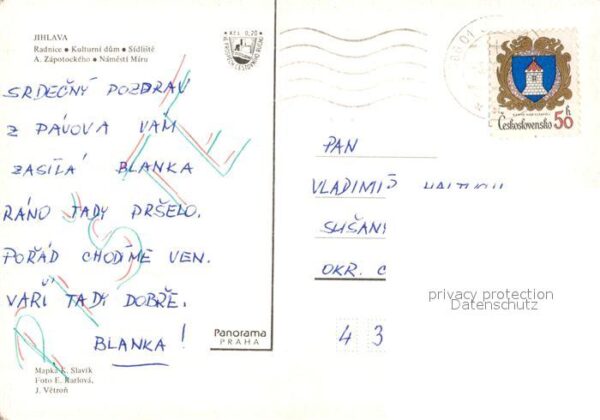 JIHLAVA
Radnice • Kulturní dům • Sídliště
A. Zápotockého • Náměstí Míru
KčS 0,20
SRDEČNÝ POZDRAV
Z PÁVOVA VÁM
ZASÍLÁ BLANKA
RÁNO TADY PRŠELO.
POŘÁD CHODÍME VEN.
VAŘÍ TADY DOBŘE.
BLANKA!
PIŠTE
Mapka K. Slavík
Foto E. Razlová,
J. Větroň
Panorama
PRAHA
Československo 50 h
PAN
VLADIMÍR
SUŠANY
OKR. C
4 3
privacy protection
Datenschutz